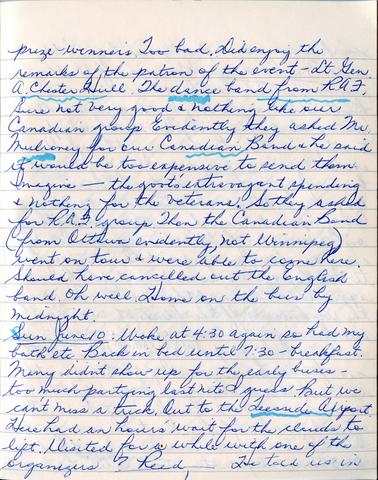 prize winners. Too bad. Did enjoy the
remarks of the patron of the event - Lt Gen.
A. Chester Hull. The dance band from R.A.F.
were not very good & nothing like our
Canadian group. Evidently they asked Mr.
Mulroney for our Canadian Band & he said
it would be too expensive to send them.
Imagine — the gov't's extravagant spending
& nothing for the veterans! So they asked
for R.A.F. group. Then the Canadian Band
(from Ottawa evidently, not Winnipeg)
went on tour & were able to come here.
Should have cancelled out the English
band. Oh well. Home on the bus by
midnight.
Sun June 10: Woke at 4:30 again so had my
bath etc. Back in bed until 7:30 - breakfast.
Many didn't show up for the early buses -
too much partying last nite I guess. But we
can't miss a trick. Out to the Teesside Airport.
Here had an hours' wait for the clouds to
lift. Visited for a while with one of the
organizers ? Reed, He told us in